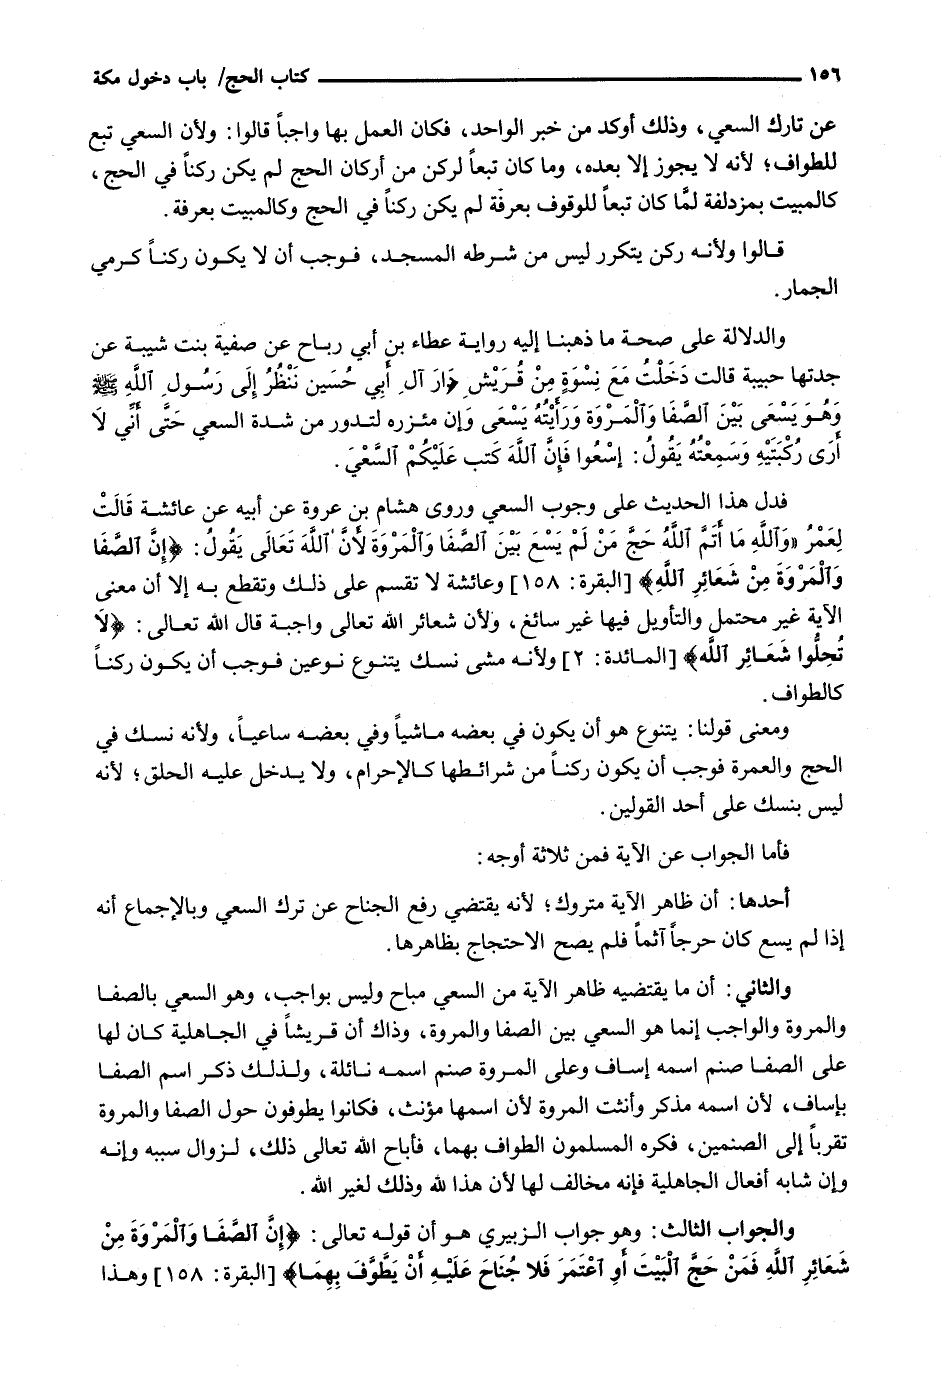 ١٥٦ كتاب الحج/ باب دخول مكة
عن تارك السعي، وذلك أوكد من خبر الواحد، فكان العمل بها واجباً قالوا: ولأن السعي تبع
للطواف؛ لأنه لا يجوز إلا بعده، وما كان تبعاً لركن من أركان الحج لم يكن ركناً في الحج،
كالمبيت بمزدلفة لمَّا كان تبعاً للوقوف بعرفة لم يكن ركناً في الحج وكالمبيت بعرفة.
قالوا ولأنه ركن يتكرر ليس من شرطه المسجد، فوجب أن لا يكون ركناً كرمي
الجمار.
والدلالة على صحة ما ذهبنا إليه رواية عطاء بن أبي رباح عن صفية بنت شيبة عن
جدتها حبيبة قالت دَخَلْتُ مَعَ نِسْوَةٍ مِنْ قُرَيْشٍ دَارَ آلِ أَبِي حُسَين نَنْظُرُ إِلَى رَسُولِ ٱللَّهِ ﷺ
وَهُوَ يَسْعَى بَيْنَ ٱلصَّفَا وَٱلْمَرْوَة وَرَأَيْتُهُ يَسْعَى وَإن مئزره لتدور من شدة السعي حَتَّى أَنِّي لَا
أَرَى رُكْبَتَيْهِ وَسَمِعْتُهُ يَقُولُ: إسْعُوا فَإِنَّ ٱللَّهَ كَتب عَلَيْكُمْ ٱلسَّعْيَ.
فدل هذا الحديث على وجوب السعي وروى هشام بن عروة عن أبيه عن عائشة قَالَتْ
لِعَمْرُ «وَٱللَّهِ مَا أَتَمَّ ٱللَّهُ حَجَّ مَنْ لَمْ يَسْعَ بَيْنَ ٱلصَّفَا وَٱلْمَرْوَة لأَنَّ ٱللَّهَ تَعَالَى يَقُولُ: ﴿إِنَّ ٱلصَّفَا
وَٱلْمَرْوَةَ مِنْ شَعَائِرِ ٱللَّهِ﴾ [البقرة: ١٥٨] وعائشة لا تقسم على ذلك وتقطع به إلا أن معنى
الآية غير محتمل والتأويل فيها غير سائغ، ولأن شعائر الله تعالى واجبة قال الله تعالى: ﴿لَا
تُحِلُّوا شَعَائِر ٱللَّه﴾ [المائدة: ٢] ولأنه مشى نسك يتنوع نوعين فوجب أن يكون ركناً
كالطواف.
ومعنى قولنا: يتنوع هو أن يكون في بعضه ماشياً وفي بعضه ساعياً، ولأنه نسك في
الحج والعمرة فوجب أن يكون ركناً من شرائطها كالإحرام، ولا يدخل عليه الحلق؛ لأنه
ليس بنسك على أحد القولين.
فأما الجواب عن الآية فمن ثلاثة أوجه:
أحدها: أن ظاهر الآية متروك؛ لأنه يقتضي رفع الجناح عن ترك السعي وبالإجماع أنه
إذا لم يسع كان حرجاً آثماً فلم يصح الاحتجاج بظاهرها.
والثاني: أن ما يقتضيه ظاهر الآية من السعي مباح وليس بواجب، وهو السعي بالصفا
والمروة والواجب إنما هو السعي بين الصفا والمروة، وذاك أن قريشاً في الجاهلية كان لها
على الصفا صنم اسمه إساف وعلى المروة صنم اسمه نائلة، ولذلك ذكر اسم الصفا
بإساف، لأن اسمه مذكر وأنثت المروة لأن اسمها مؤنث، فكانوا يطوفون حول الصفا والمروة
تقرباً إلى الصنمين، فكره المسلمون الطواف بهما، فأباح الله تعالى ذلك، لزوال سببه وإنه
وإن شابه أفعال الجاهلية فإنه مخالف لها لأن هذا لله وذلك لغير الله.
والجواب الثالث: وهو جواب الزبيري هو أن قوله تعالى: ﴿إِنَّ ٱلصَّفَا وَٱلْمَرْوَةَ مِنْ
شَعَائِرِ ٱللَّهِ فَمَنْ حَجَّ ٱلْبَيْتَ أَوِ ٱعْتَمَرَ فَلَا جُنَاحَ عَلَيْهِ أَنْ يَطَّوَّفَ بِهِمَا﴾ [البقرة: ١٥٨] وهذا